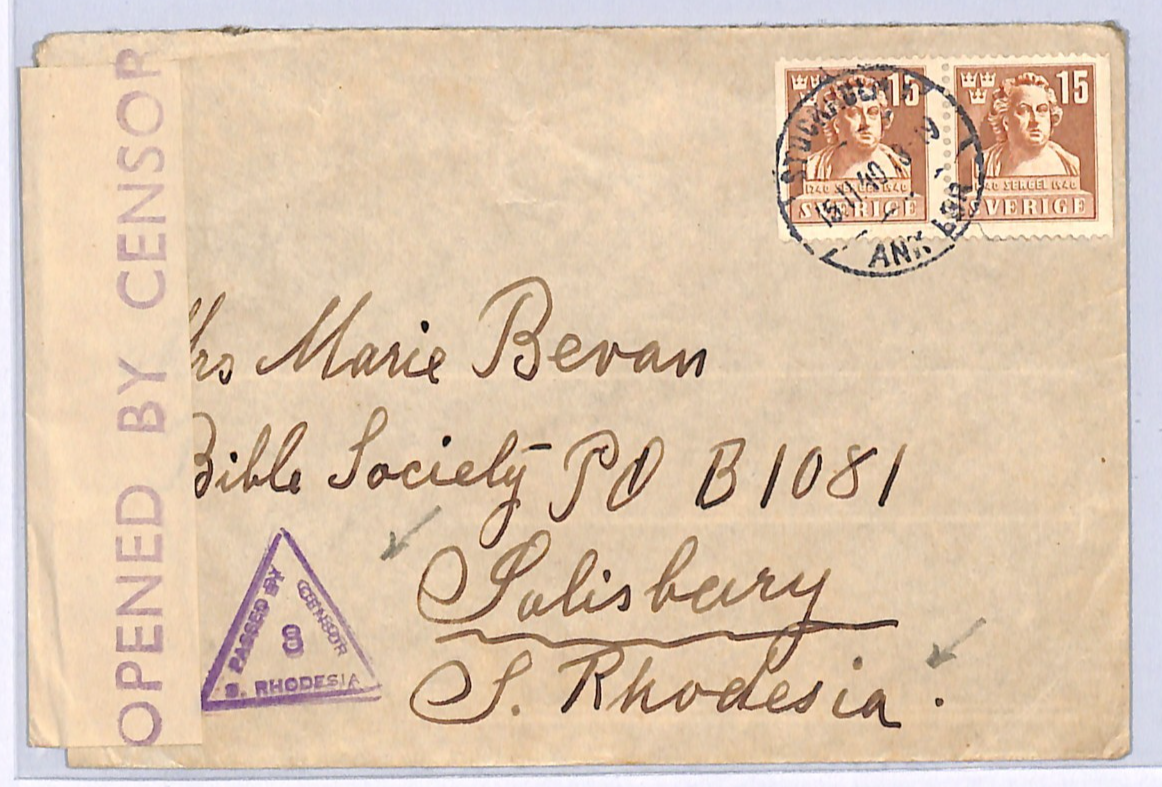 OPENED BY CENSOR
15 15
1740 SERGEL 1940 SERGEL 1940
SVERIGE SVERIGE
STOCKHOLM
15.11.40
ANK
Mrs Marie Bevan
Bible Society PO B 1081
Salisbury
S. Rhodesia.
PASSED BY CENSOR
8
S. RHODESIA